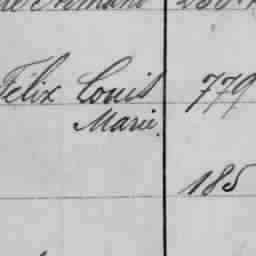 Félix Louis 779
Marie.
185